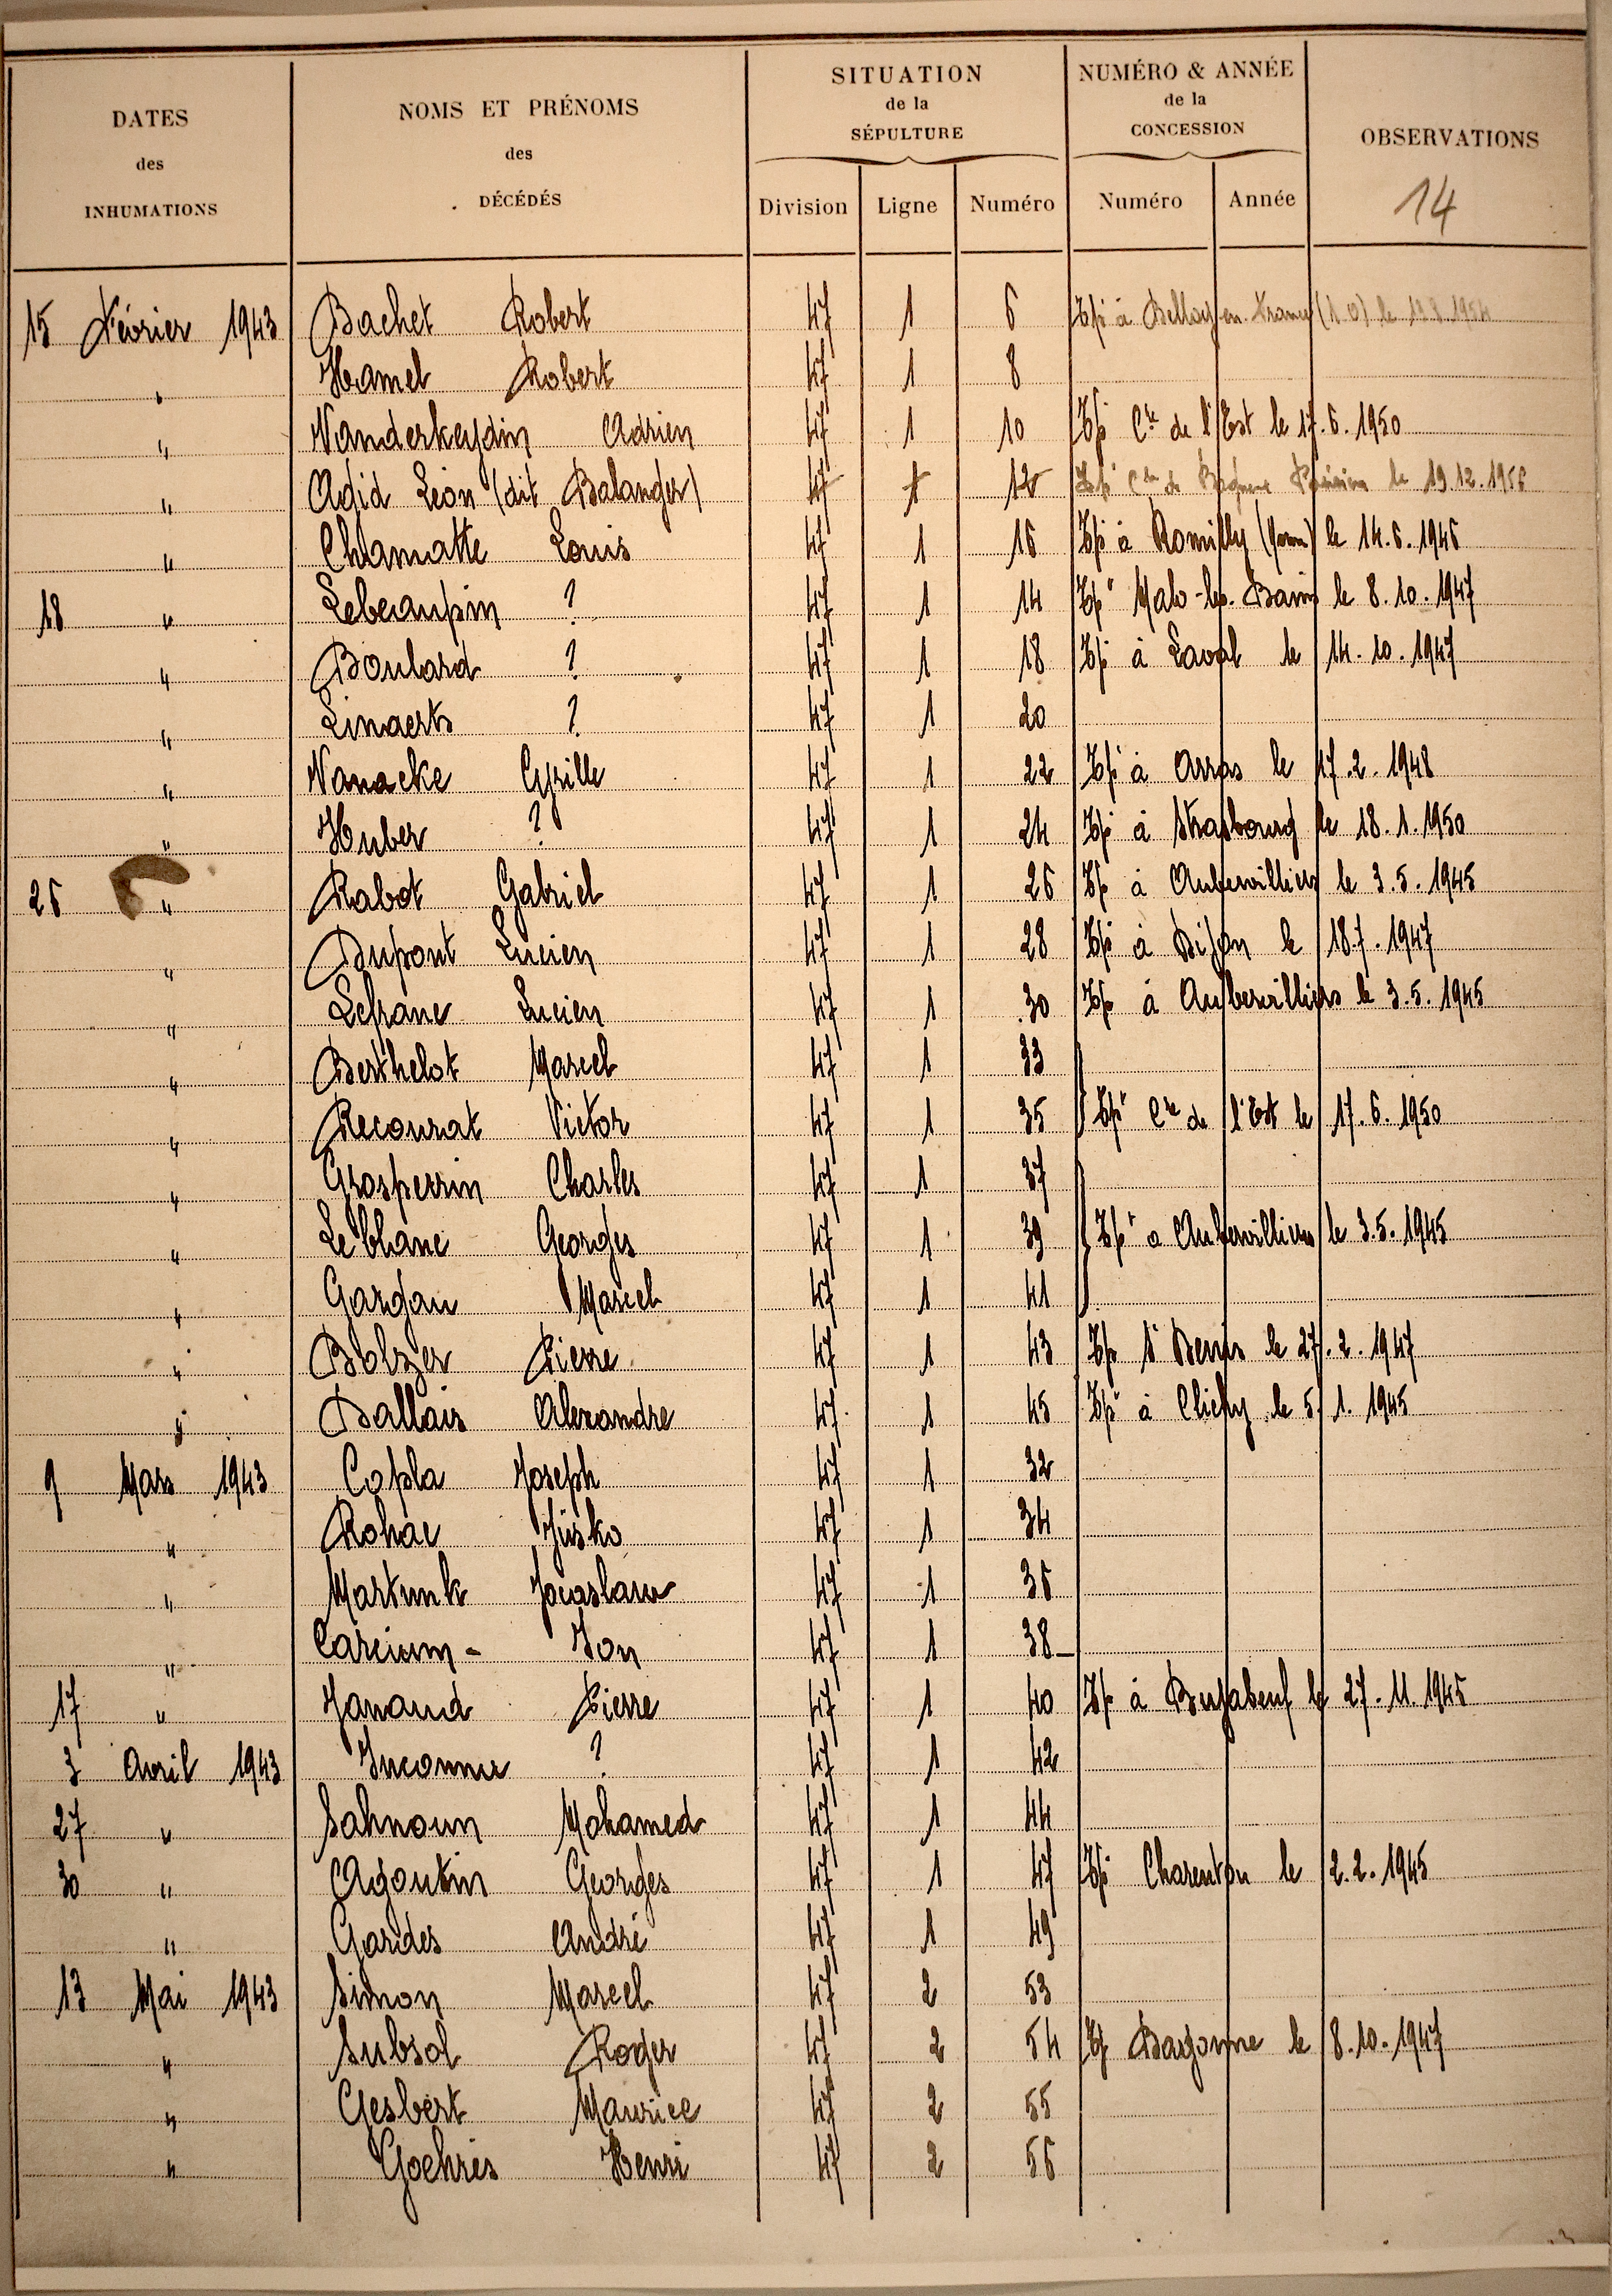 DATES des INHUMATIONS
NOMS ET PRÉNOMS des DÉCÉDÉS
SITUATION de la SÉPULTURE
Division Ligne Numéro
NUMÉRO & ANNÉE de la CONCESSION
Numéro Année
OBSERVATIONS
14
15 Février 1943 Bachet Robert 47 1 6 Tpé à Belloy en France (S.O) le 1954
" Hamel Robert 47 1 8
" Vanderheydin Adrien 47 1 10 Tpé Cre de l'Est le 17.6.1950
" Adid Léon (dit Balanger) 47 1 12 Tpé Cre de Parisien le 19.12.1956
" Chamatte Louis 47 1 16 Tpé à Romilly le 14.6.1946
18 " Lebeaupin ? 47 1 14 Tpé Malo-les-Bains le 8.10.1947
" Boulard ? 47 1 18 Tpé à Laval le 14.10.1947
" Linaerts ? 47 1 20
" Vanacke Cyrille 47 1 22 Tpé à Arras le 17.2.1948
" Huber ? 47 1 24 Tpé à Strasbourg le 18.1.1950
26 " Rabot Gabriel 47 1 26 Tpé à Aubervilliers le 3.5.1945
" Dupont Lucien 47 1 28 Tpé à Dijon le 18.7.1947
" Lefranc Lucien 47 1 30 Tpé à Aubervilliers le 3.5.1945
" Berthelot Marcel 47 1 33
" Recourat Victor 47 1 35 Tpé Cre de l'Est le 17.6.1950
" Grosperrin Charles 47 1 37
" Leblanc Georges 47 1 39 Tpé à Aubervilliers le 3.5.1945
" Gargau Marcel 47 1 41
" Bolzer Pierre 47 1 43 Tpé St Denis le 27.2.1947
" Ballais Alexandre 47 1 45 Tpé à Clichy le 5.1.1945
9 Mars 1943 Copla Joseph 47 1 32
" Rohac Jusko 47 1 34
" Martunk 47 1 36
" Carcium - Jon 47 1 38
17 " Janaud Pierre 47 1 40 Tpé à le 27.11.1945
3 Avril 1943 Inconnu ? 47 1 42
27 " Sahnoun Mohamed 47 1 44
30 " Agoutin Georges 47 1 47 Tpé Charenton le 2.2.1945
" Gardes André 47 1 49
13 Mai 1943 Simon Marcel 47 2 53
" Subsol Roger 47 2 54 Tpé Bayonne le 8.10.1947
" Gesbert Maurice 47 2 55
" Goehris Henri 47 2 56